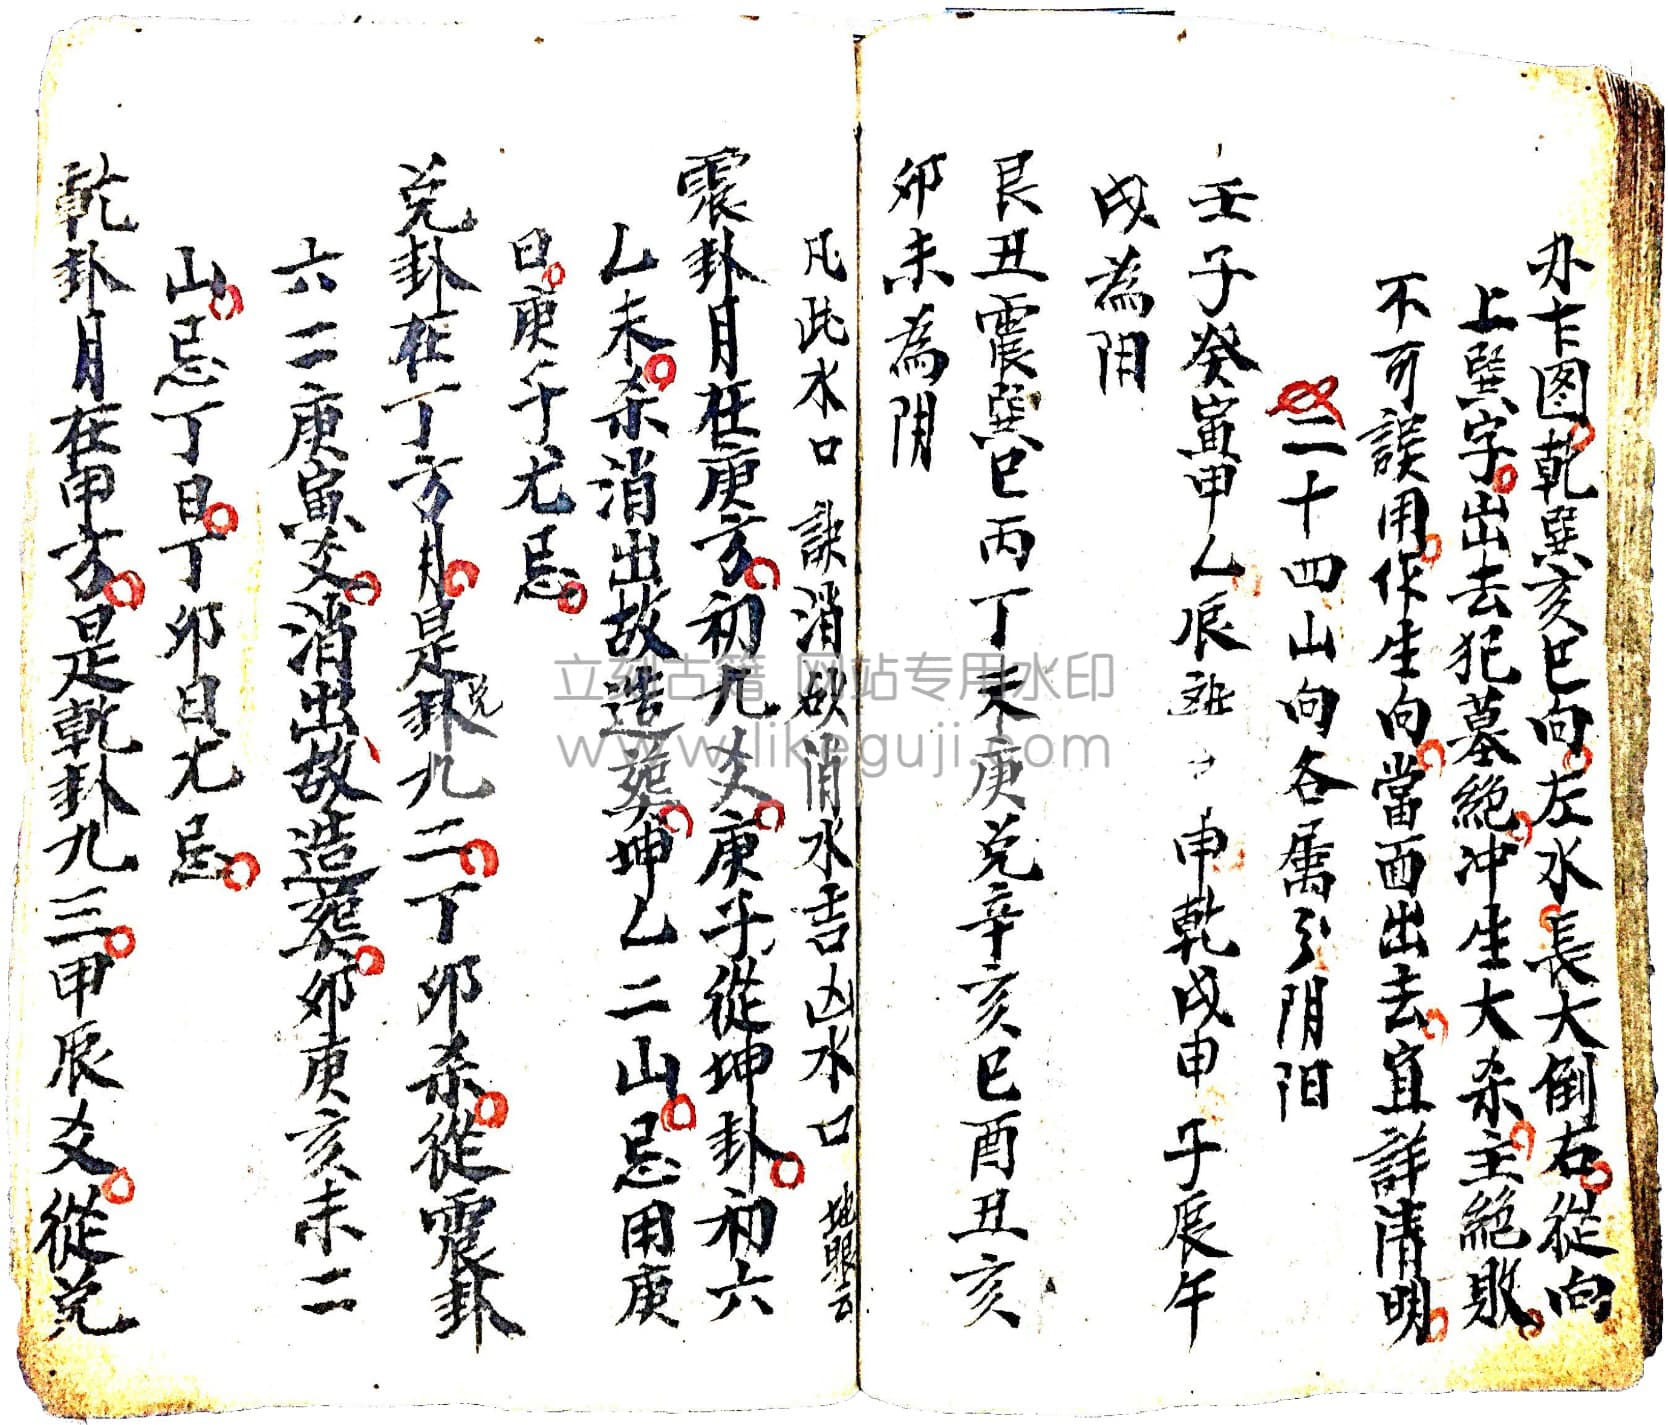 办卡图乾巽亥巳向左水長大倒右從向
上巽字出去犯墓絶冲生大杀主絶敗
不可誤用作生向當面出去宜詳清明
二十四山向各属分阴阳
壬子癸寅甲乙辰 申乾戌申子辰午
戌為阳
艮丑震巽巳丙丁未庚兑辛亥巳酉丑亥
卯未為阴
凡此水口訣消砍消水吉凶水口 地眼云
震卦月在庚方初九爻庚子從坤卦初六
乙未杀消出故造葬坤乙二山忌用庚
日庚午尤忌
兑卦在丁方月是兑卦九二丁卯杀從震卦
六二庚寅爻消出故造葬卯庚亥未二
山忌丁日丁卯日尤忌
乾卦月在甲方是乾卦九三甲辰爻從兑
立刻古籍 网站专用水印
www.likeguji.com